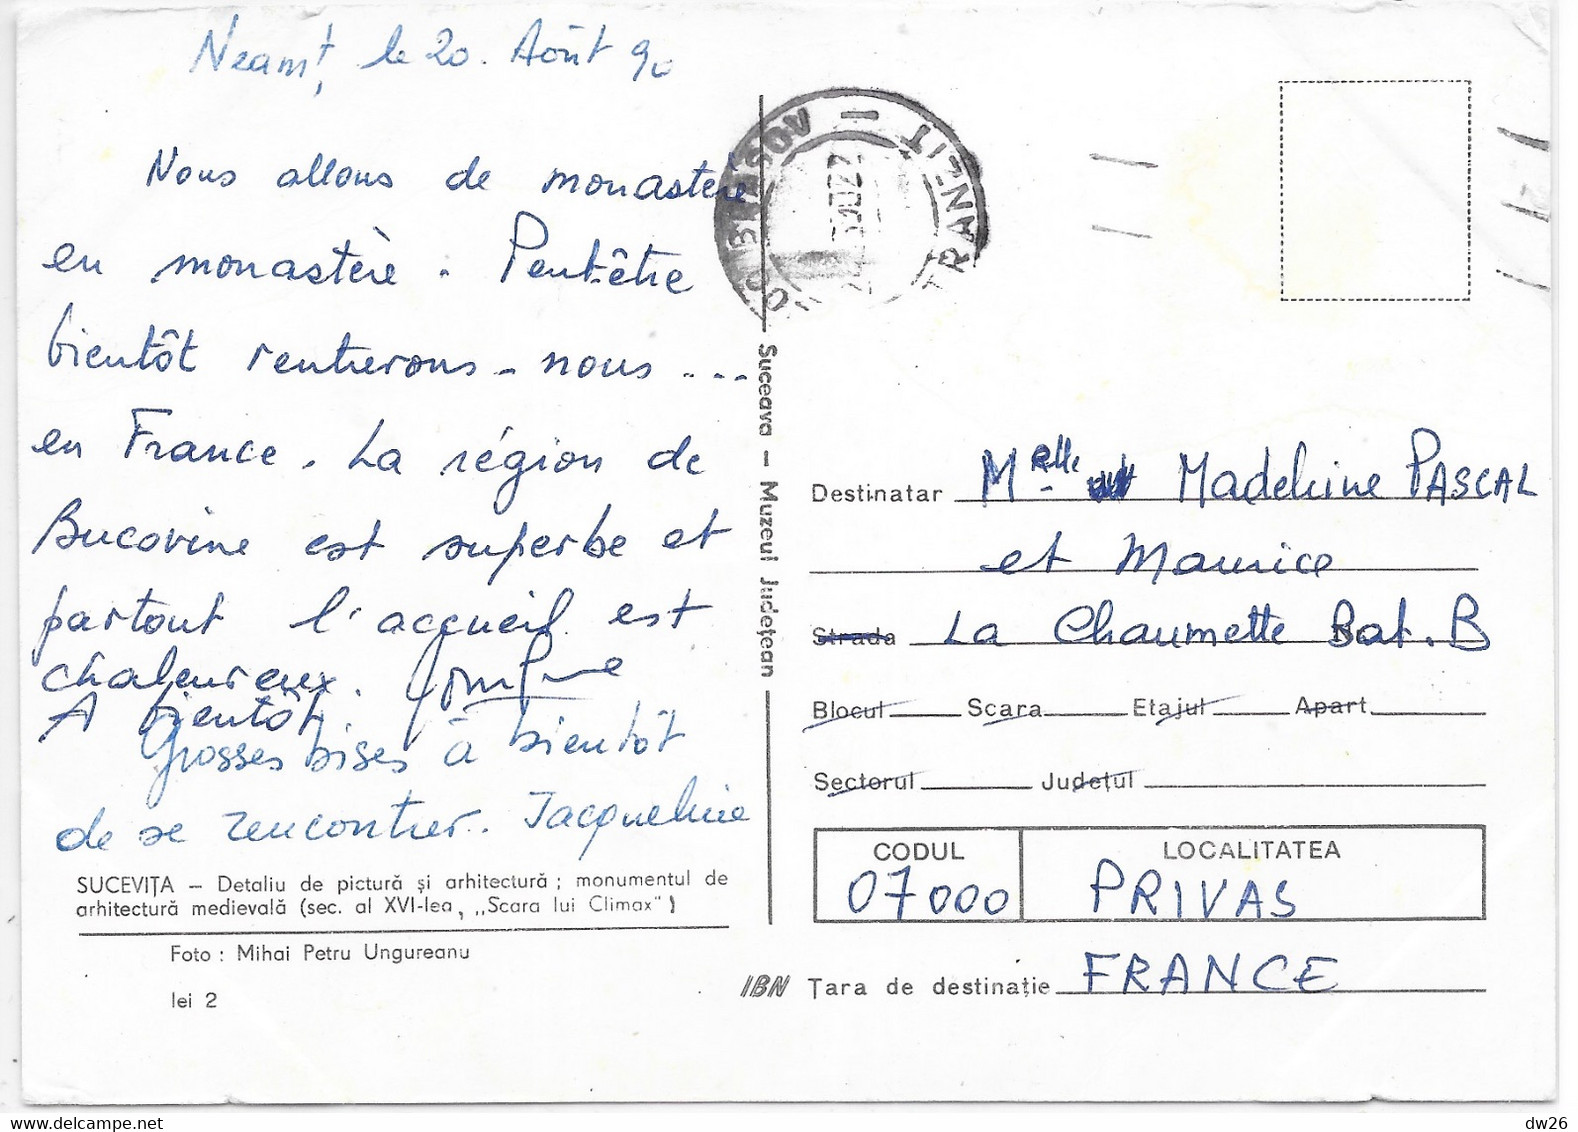 Neamț, le 20. Août 90
Nous allons de monastère
en monastère. Peut-être
bientôt rentrerons-nous ...
en France. La région de
Bucovine est superbe et
partout l'accueil est
chaleureux.
A bientôt.
Grosses bises à bientôt
de se rencontrer. Jacqueline
SUCEVIȚA – Detaliu de pictură și arhitectură ; monumentul de
arhitectură medievală (sec. al XVI-lea, „Scara lui Climax")
Foto : Mihai Petru Ungureanu
lei 2
Suceava – Muzeul Județean
BRASOV – TRANZIT
Destinatar Melle Madeleine PASCAL
et Maurice
Strada La Chaumette Bat. B
Blocul Scara Etajul Apart.
Sectorul Județul
CODUL LOCALITATEA
07000 PRIVAS
IBN Țara de destinație FRANCE
dw26